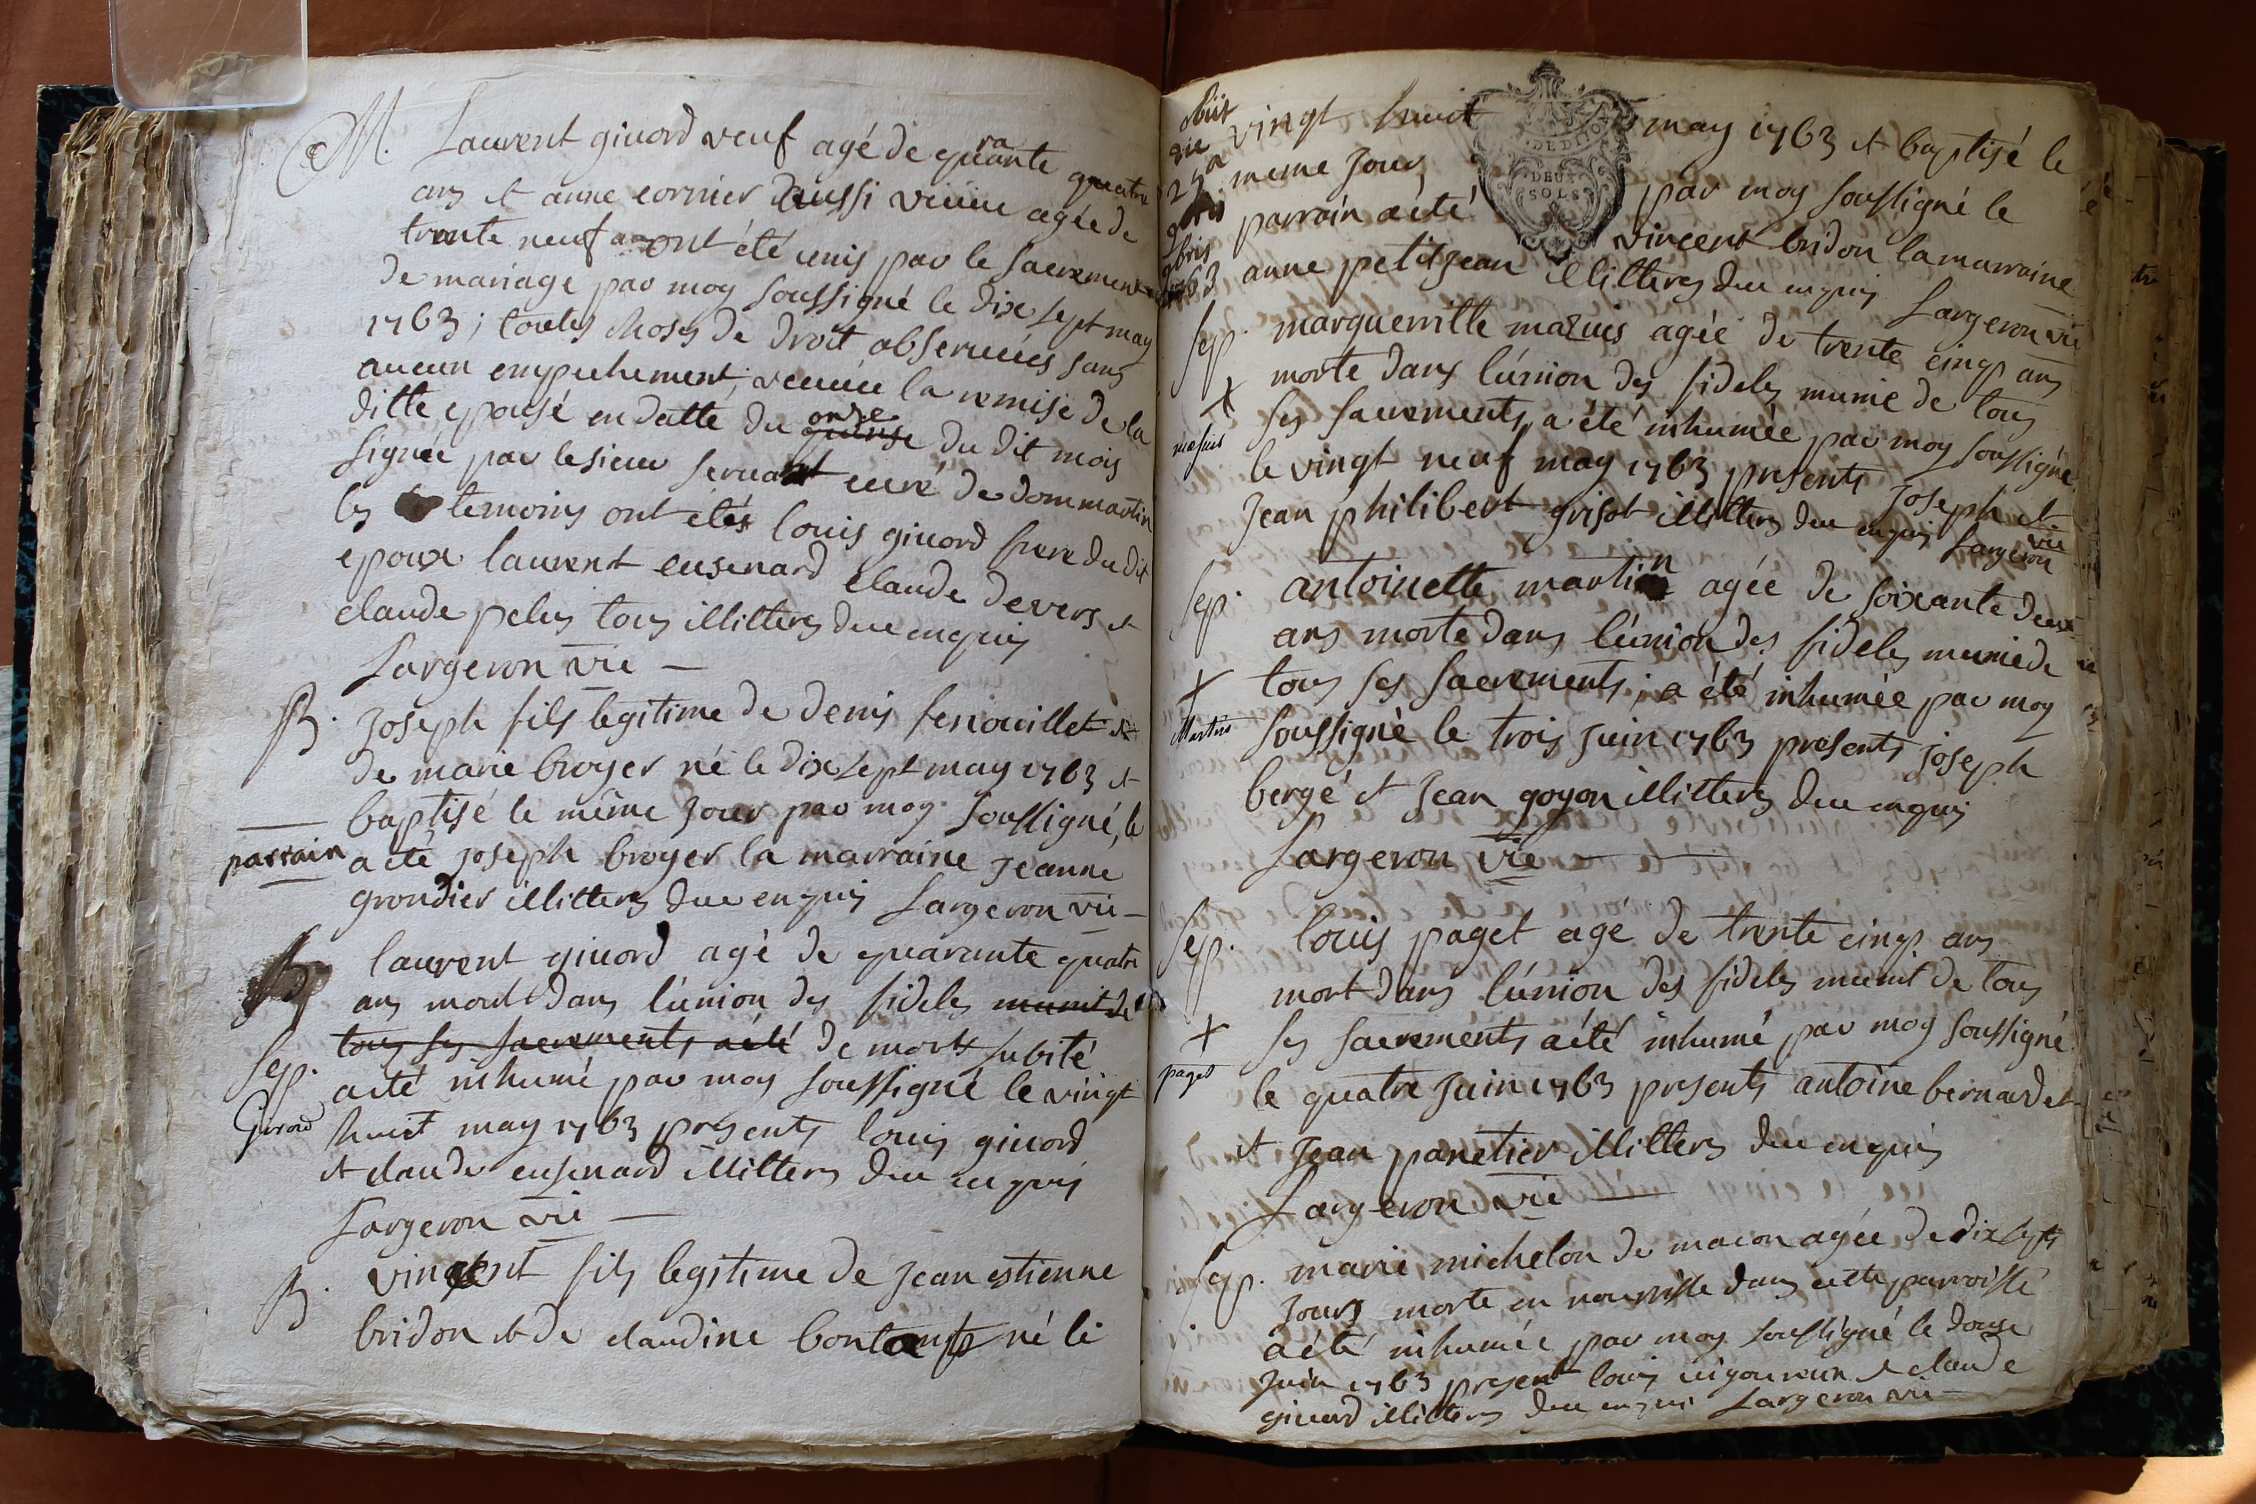 M. Laurent givord veuf agé de quarante quatre
ans et anne cornier aussi veuve agée de
trente neuf ans ont été unis par le sacrement
de mariage par moy soussigné le dix sept may
1763; toutes choses de droit observées sans
aucun empechement; veuue la remise de la
ditte epouse en datte du quinse onze du dit mois
signée par le sieur servant curé de dommartin
les temoins ont étés louis givord frere du dit
epoux laurent eusenard claude devers et
claude pelus tous illitterés due enquis
Largeron vic
B. Joseph fils legitime de denis fenouillet et
de marie broyer né le dix sept may 1763 et
baptisé le même jour par moy soussigné, le
parrain
a été joseph broyer la marraine jeanne
grondier illitterés due enquis Largeron vic
laurent givord agé de quarante quatre
ans mort dans l'union des fideles munit de
tous ses sacrements a été de mort subite
Sep. a été inhumé par moy soussigné le vingt
Givord
huit may 1763 presents louis givord
et claude eusenard illitterés due enquis
Largeron vic
B. vincent fils legitime de jean estienne
bridon et de claudine bontemps né le
obiit
die
25a
9bris
1763
vingt huit may 1763 et baptisé le
meme jour par moy soussigné le
parrain a été vincent bridon la marraine
anne petitjean illitterés due enquis Largeron vic
Sep. marguerite mazuis agée de trente cinq ans
morte dans l'union des fideles munie de tous
mazuis
ses sacrements, a été inhumée par moy soussigné
le vingt neuf may 1763 presents joseph et
jean philibert grisot illitterés due enquis Largeron vic
Sep. antoinette martin agée de soixante deux
ans morte dans l'union des fideles munie de
tous ses sacrements; a été inhumée par moy
Martin
soussigné le trois juin 1763 presents joseph
bergé et jean goyon illitterés due enquis
Largeron vic
Sep. louis paget agé de trente cinq ans
mort dans l'union des fideles munit de tous
ses sacrements a été inhumé par moy soussigné
paget
le quatre juin 1763 presents antoine bernardet
et jean panetier illitterés due enquis
Largeron vic
Sep. marie michelon de macon agée de dix sept
jours morte en nourrisse dans cette parroisse
a été inhumée par moy soussigné le douze
juin 1763 present louis et claude
givord illitterés due enquis Largeron vic
DEUX
SOLS